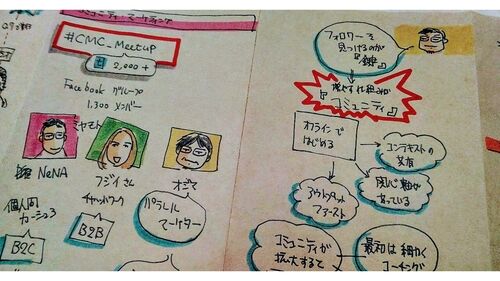 コミュニティ・マーケティング
#CMC_Meetup
2,000+
Facebook グループ
1,300 メンバー
ミヤモト
NeNA
フジイさん
チャットワーク
オジマ
パラレル
マーケター
個人間
カーシェア
B2C
B2B
フォロワーを
見つけるのが
コミュニティ
オフラインで
はじめる
コンテキストの
共有
アウトプット
ファースト
関心軸が
合っている
コミュニティが
拡大すると
最初は細かく
コーチング